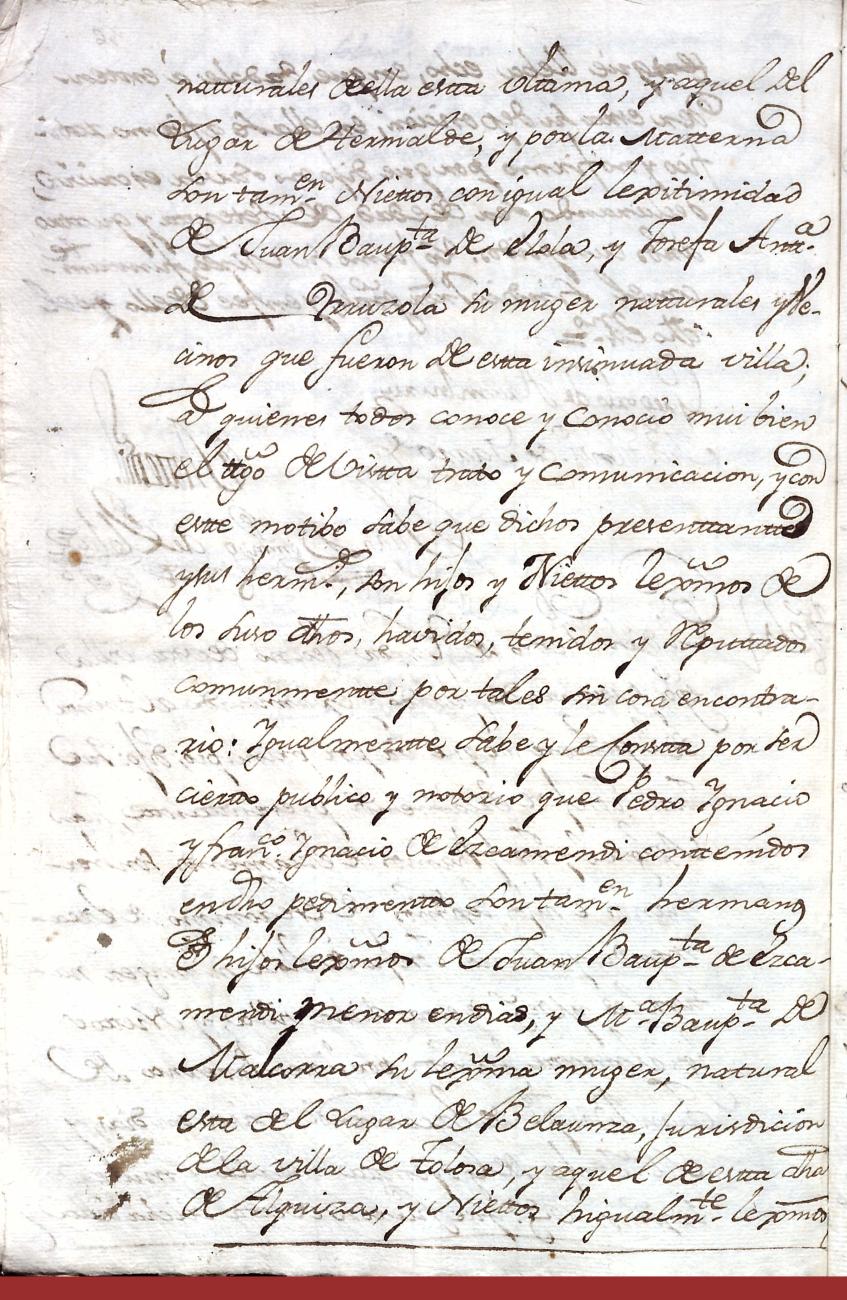 natturales de ella estta ultima, y aquel del
Lugar de Hernialde, y por la Matterna
son tam.en Niettos con igual lexitimidad
de Juan Baup.ta de Elola, y Josefa Antt.a
de Yrruzola su muger natturales y Ve-
cinos que fueron de estta insinuada villa;
a quienes todos conoce y conocio mui bien
el ttgo de Vistta trato y comunicacion, y con
estte motibo sabe que dichos presenttantte
y sus herm.s, son hijos y Niettos lexmos de
los suso dhos, havidos, tenidos y Reputtados
comunmentte por tales sin cosa encontra-
rio: Igualmentte sabe y le Constta por ser
ciertto publico y notorio que Pedro Ygnacio
y fran.co Ygnacio de Ezcamendi conttenidos
en dho pedimentto son tam.en hermanos
é hijos lexmos de Juan Baup.ta de Ezca-
mendi menor en dias, y M.a Baup.ta de
Malcorra su lexma muger, natural
esta del Lugar de Belaunza, jurisdicion
de la villa de Tolosa, y aquel de estta dha
de Alquiza, y Niettos higualm.te lexmos